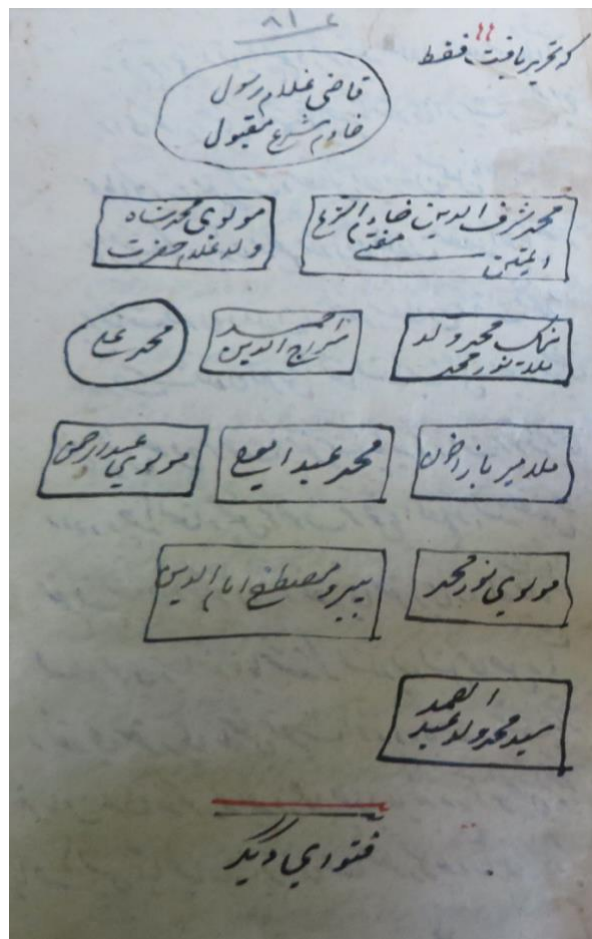 ۸۱
که تحریر یافت فقط
قاضی غلام رسول
خادم شرع مقبول
محمد شرف الدین خادم الشرع
مفتی
مولوی محمد شاه
ولد غلام حضرت
محمد ولد
ملا نور محمد
محمد
سراج الدین
محمد علی
ملا میر باز اخوند
محمد عبد
مولوي عبدالرحمن
مولوي نور محمد
پیرو مصطفی امام الدین
سید محمد ولد عبد
الصمد
فتواي دیگر